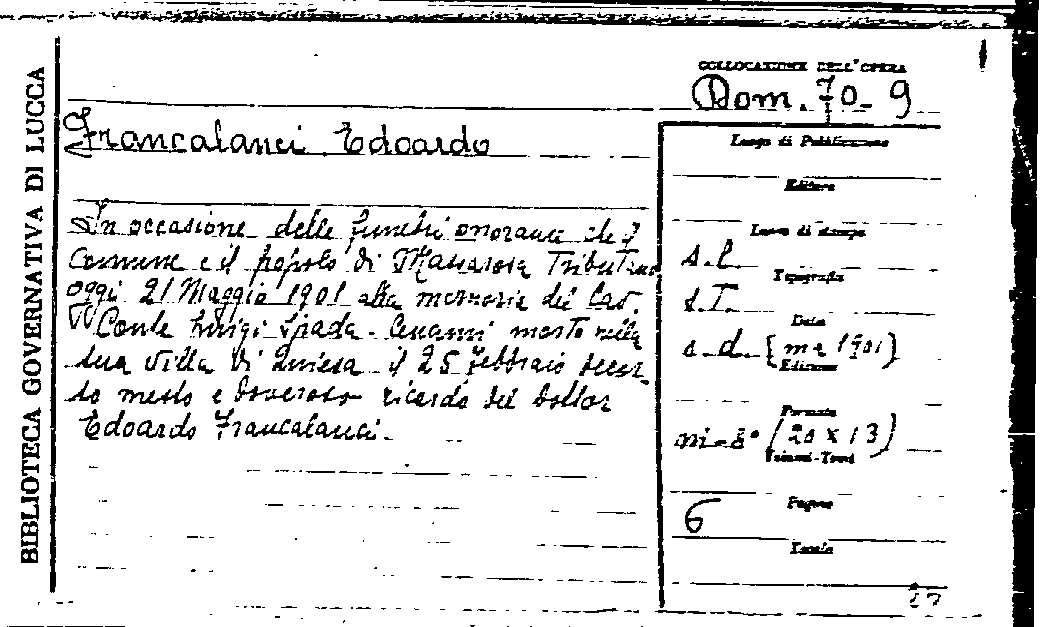 BIBLIOTECA GOVERNATIVA DI LUCCA
COLLOCAZIONE DELL'OPERA
Dom. 70-9
Francalanci Edoardo
In occasione delle funebri onoranze che il
Comune e il popolo di Massarosa Tributano
oggi 21 Maggio 1901 alla memoria del Cav.
Conte Luigi Spada-Cenami morto nella
sua villa di Quiesa il 25 febbraio decor-
so mesto e doveroso ricordo del Dottor
Edoardo Francalanci.
Luogo di Pubblicazione
Editore
Luogo di stampa
s.l.
Tipografia
s.T.
Data
s.d. [ma 1901]
Edizione
Formato
in-8° (20 x 13)
Volumi-Tomi
Pagine
6
Tavole